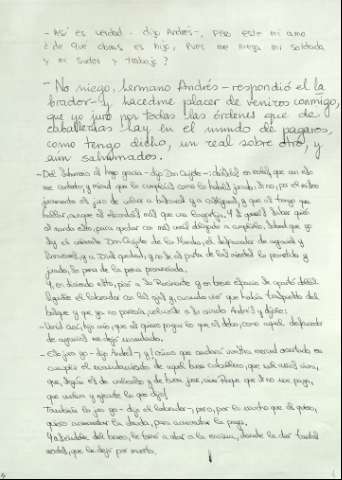 - Así es verdad - dijo Andrés -, pero este mi amo
¿de qué obras es hijo, pues me niega mi soldada
y mi sudor y trabajo?
- No niego, hermano Andrés - respondió el la
brador - y hacedme placer de veniros conmigo,
que yo juro por todas las órdenes que de
caballerías hay en el mundo de pagaros,
como tengo dicho, un real sobre otro, y
aun sahumados.
- Del sahumerio os hago gracia - dijo Don Quijote -; dádselos en reales, que con eso
me contento; y mirad que lo cumpláis como lo habéis jurado. Si no, por el mismo
juramento os juro de volver a buscaros y a castigaros, y que os tengo que
hallar, aunque os escondáis más que una lagartija. Y si queréis saber quién
os manda esto, para quedar con más veras obligado a cumplirlo, sabed que yo
soy el valeroso Don Quijote de la Mancha, el desfacedor de agravios y
sinrazones, y a Dios quedad, y no se os parta de las mientes lo prometido y
jurado, so pena de la pena pronunciada.
Y, en diciendo esto, picó a su Rocinante y en breve espacio se apartó dellos.
Siguióle el labrador con los ojos y, cuando vio que había traspuesto del
bosque y que ya no parecía, volvióse a su criado Andrés y díjole:
- Venid acá, hijo mío, que os quiero pagar lo que os debo, como aquel desfacedor
de agravios me dejó mandado.
- Eso juro yo - dijo Andrés -, y ¡cómo que andará vuestra merced acertado en
cumplir el mandamiento de aquel buen caballero, que mil años viva,
que, según es de valeroso y de buen juez, vive Roque que si no me paga,
que vuelva y ejecute lo que dijo!
También lo juro yo - dijo el labrador -, pero, por lo mucho que os quiero,
quiero acrecentar la deuda, para acrecentar la paga.
Y asiéndole del brazo, le tornó a atar a la encina, donde le dio tantos
azotes, que le dejó por muerto.